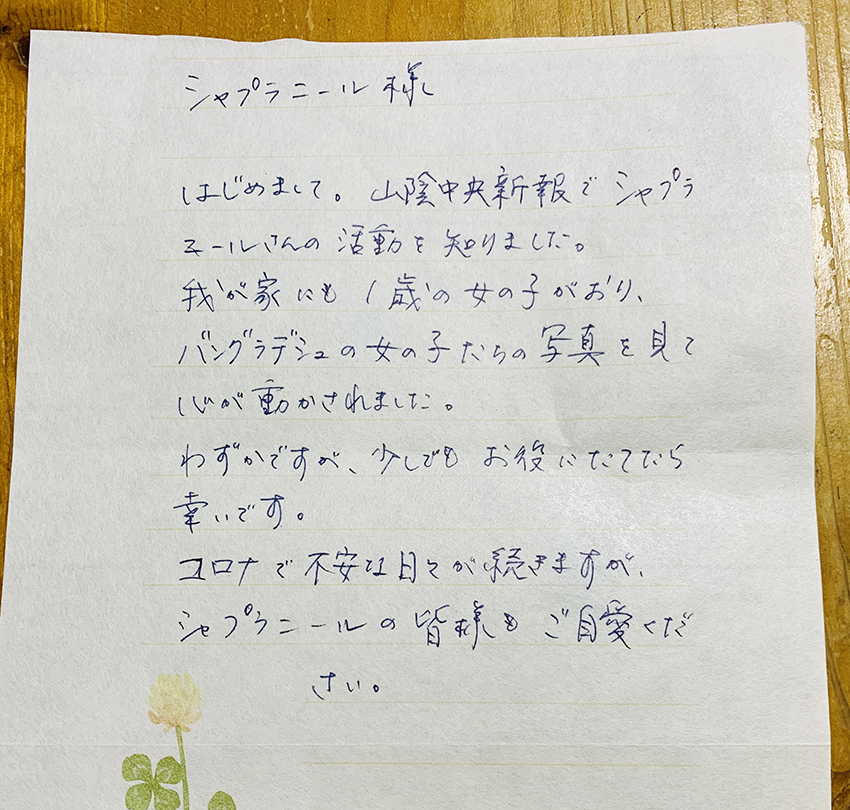 シャプラニール様
はじめまして。山陰中央新報でシャプラ
ニールさんの活動を知りました。
我が家にも1歳の女の子がおり、
バングラデシュの女の子たちの写真を見て
心が動かされました。
わずかですが、少しでもお役にたてたら
幸いです。
コロナで不安な日々が続きますが、
シャプラニールの皆様もご自愛くだ
さい。